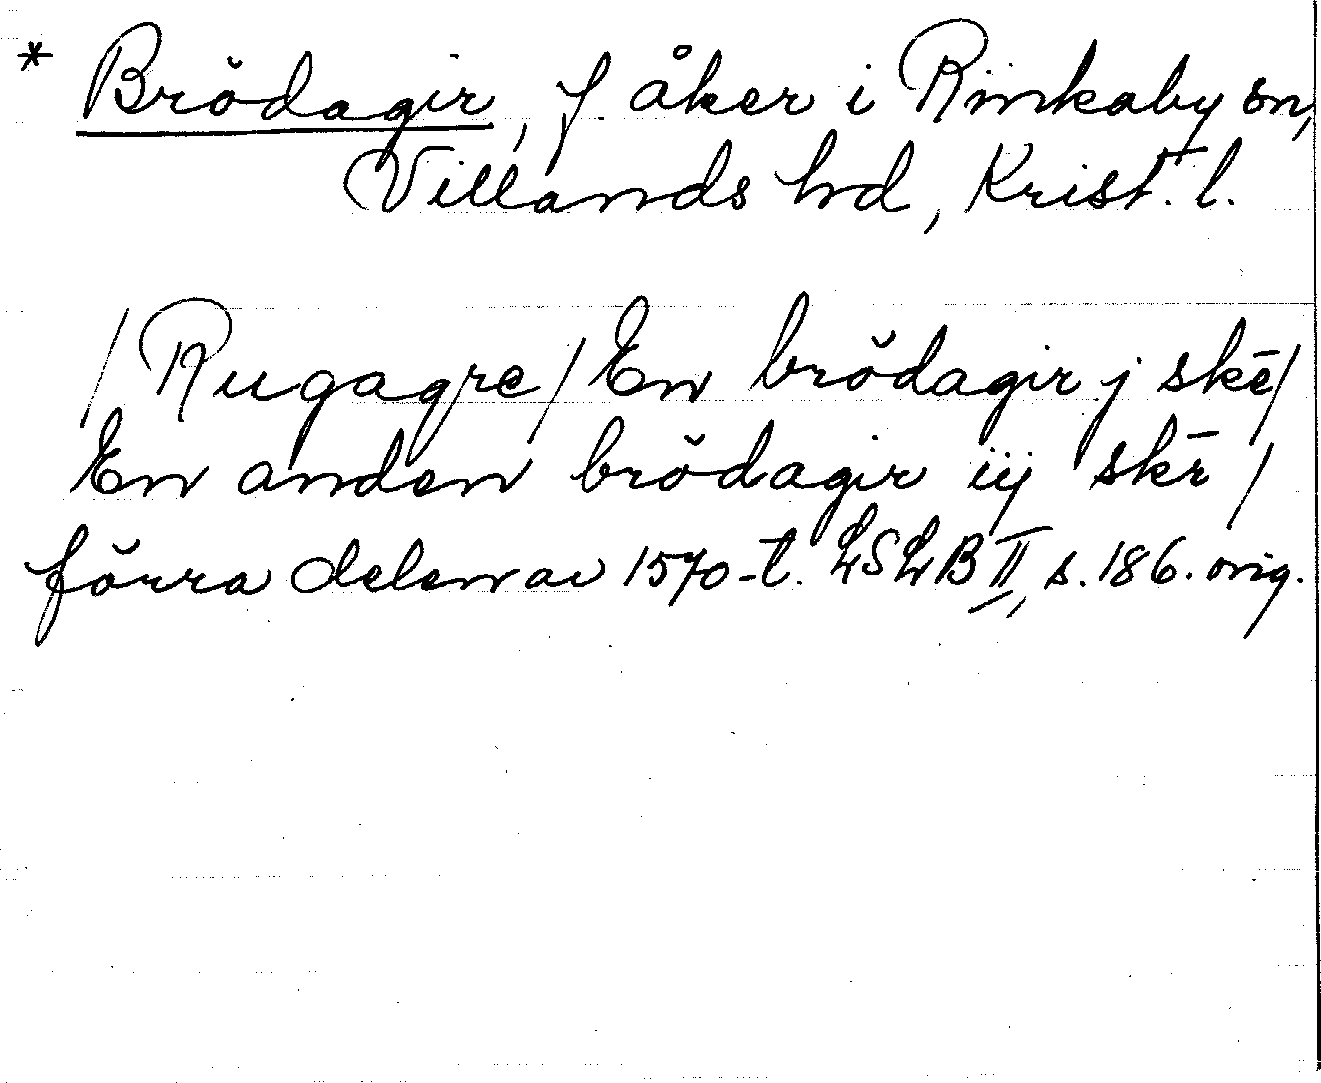 * Brödagir, f åker i Rinkaby sn,
Villands hd, Krist. l.
/Rugagre/ En brödagir j skē/
En anden brödagir iij skē /
förra delen av 1570-t. LSLB II, s. 186. orig.